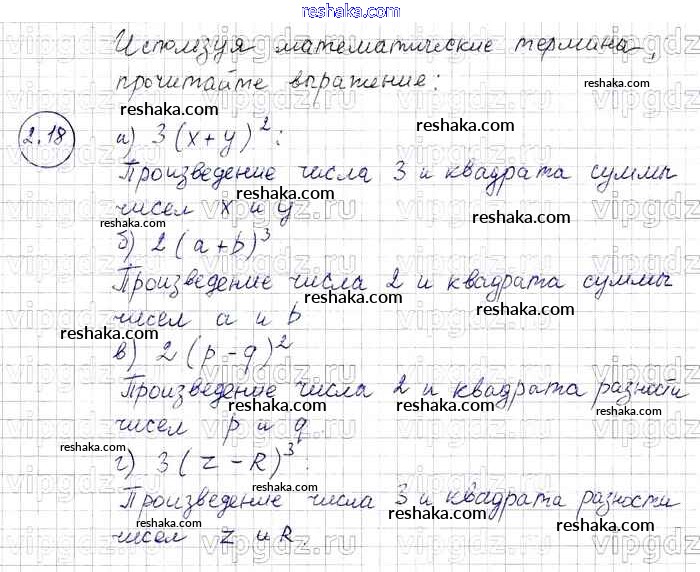 reshaka.com
Используя математические термина,
прочитайте выражение:
reshaka.com reshaka.com
2.18 а) 3(x+y)²:
reshaka.com
Произведение числа 3 и квадрата суммы
reshaka.com
чисел x и y
reshaka.com reshaka.com
б) 2(a+b)³
Произведение числа 2 и квадрата суммы
reshaka.com reshaka.com
чисел a и b
reshaka.com
в) 2(p-q)²
reshaka.com
Произведение числа 2 и квадрата разности
reshaka.com reshaka.com reshaka.com
чисел p и q
reshaka.com
г) 3(z-R)³:
reshaka.com
Произведение числа 3 и квадрата разности
reshaka.com reshaka.com
чисел z и R.
reshaka.com reshaka.com
vipgdz.ru